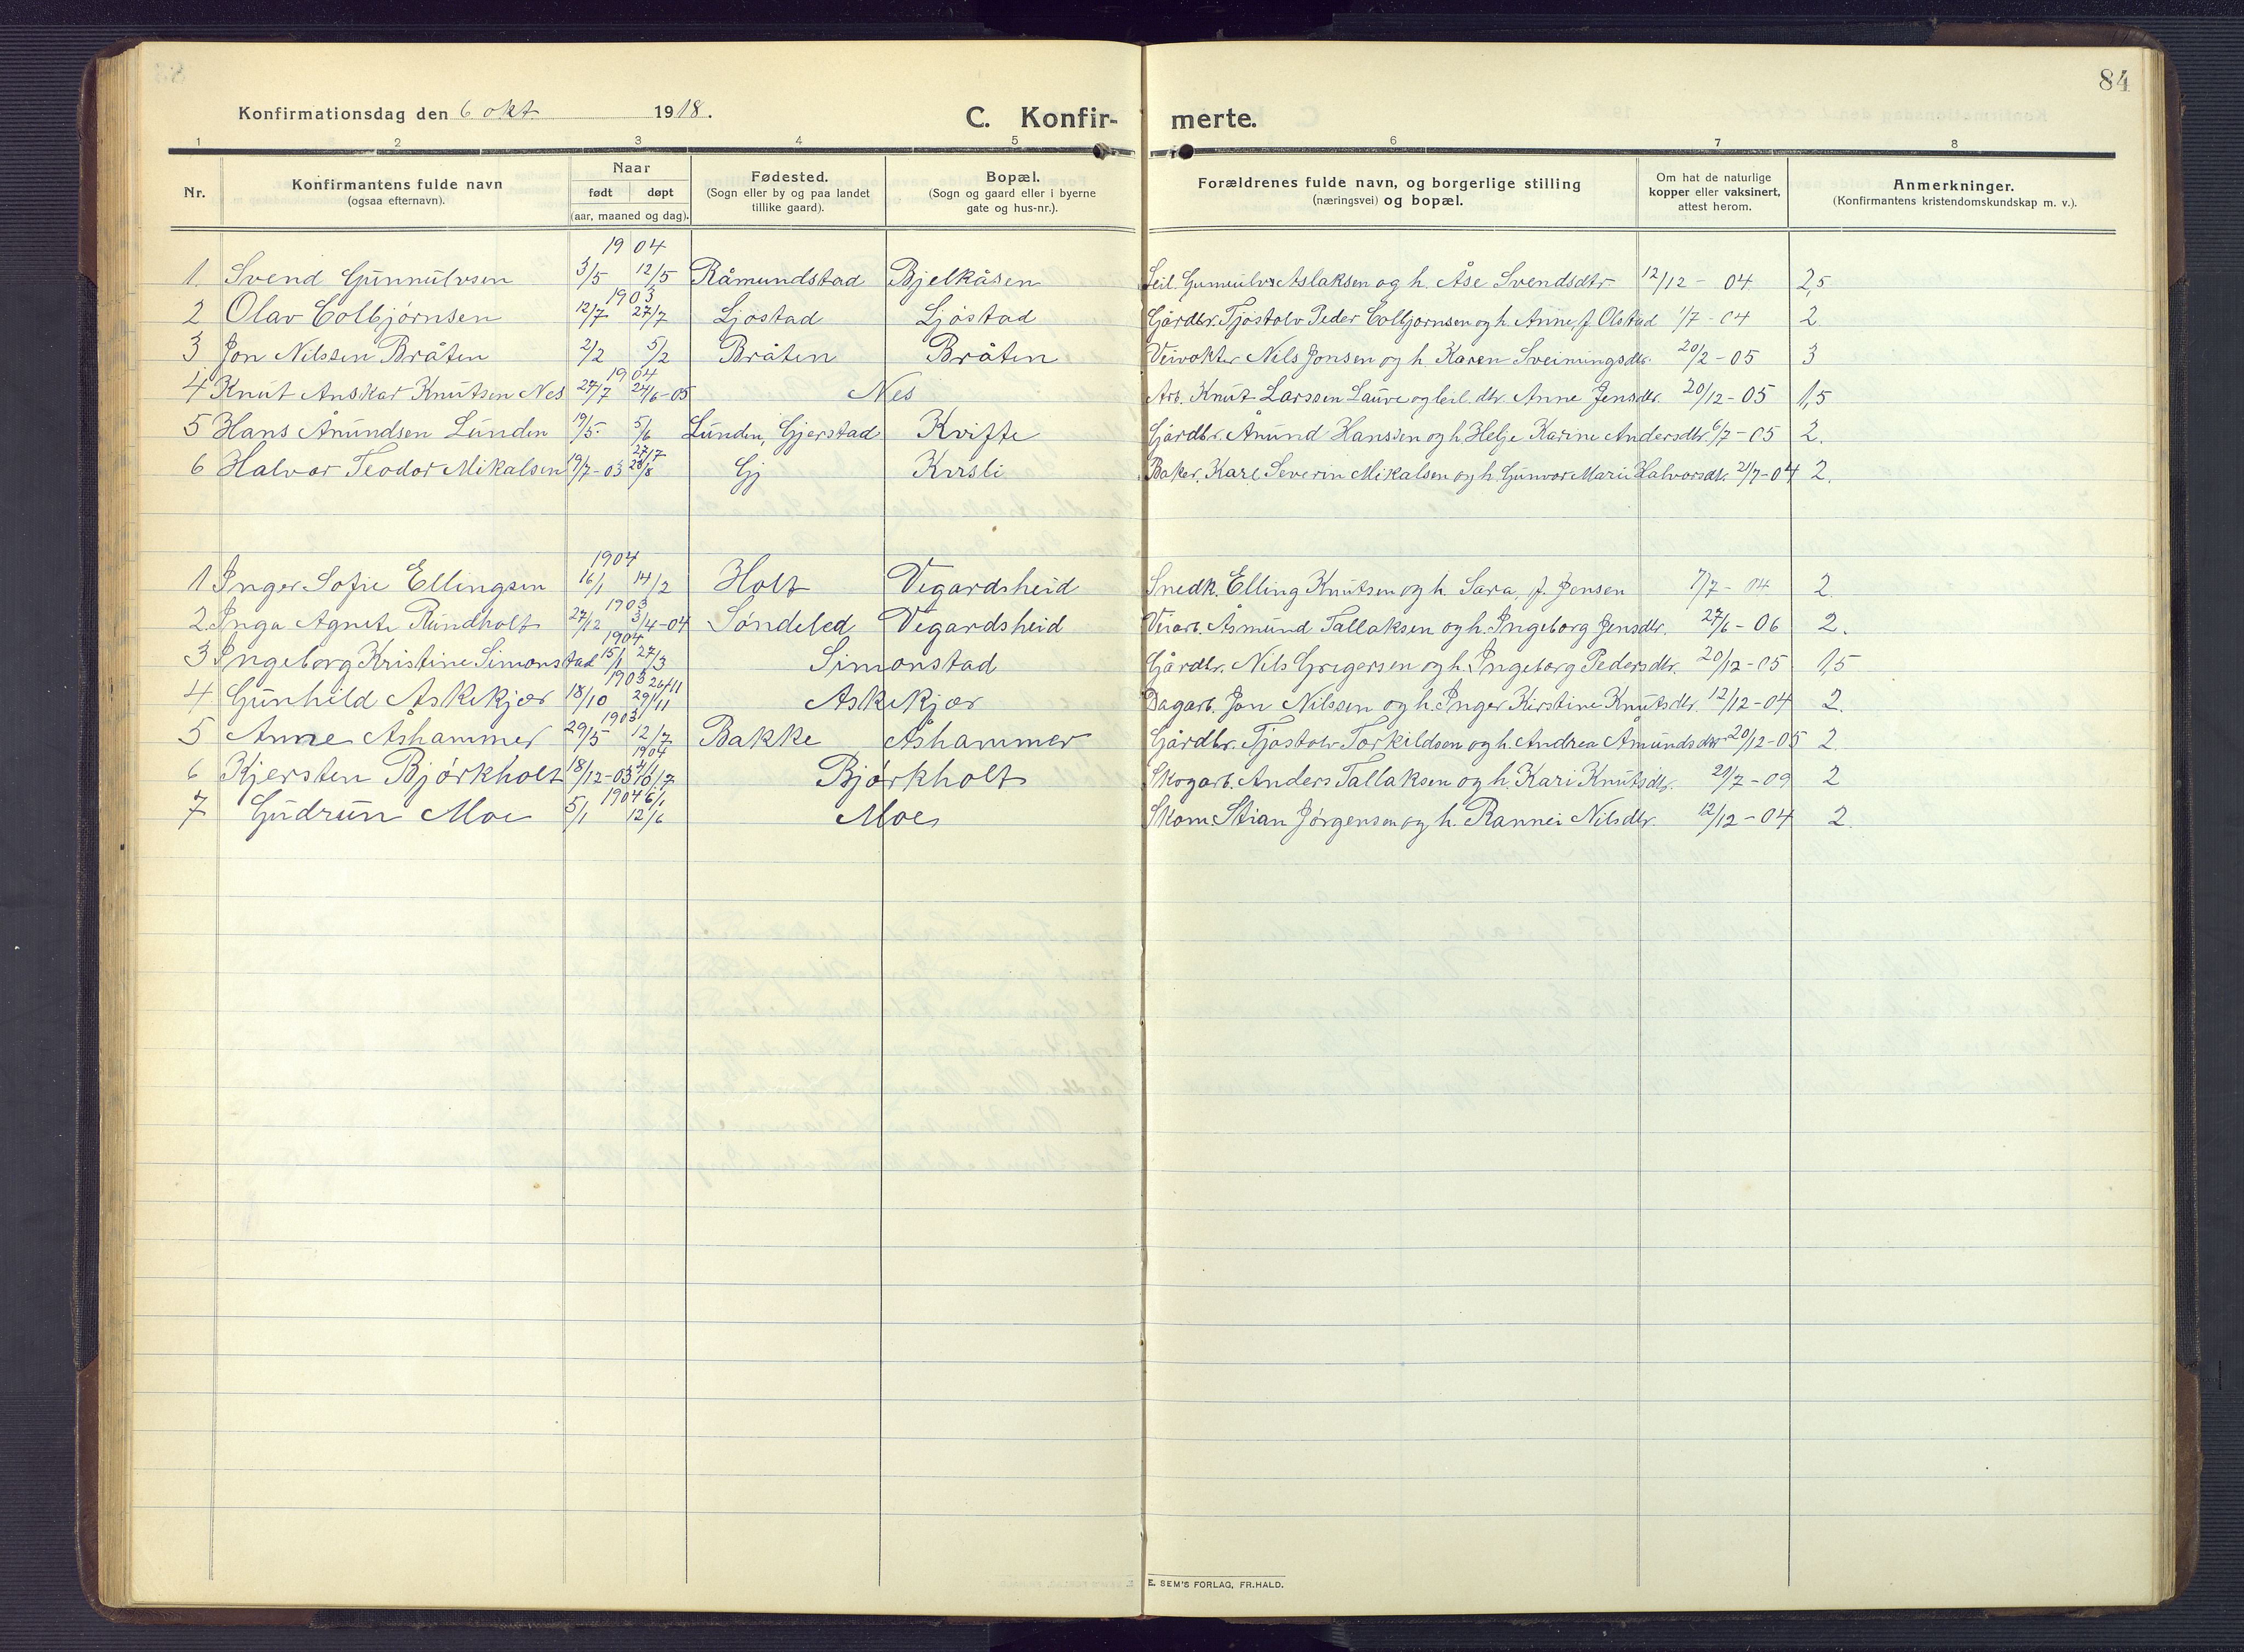 84
Konfirmationsdag den 6 okt 1918.
C. Konfir- merte.
1 2 3 4 5 6 7 8
Nr.
Konfirmantens fulde navn
(ogsaa efternavn).
Naar
født døpt
(aar, maaned og dag).
Fødested.
(Sogn eller by og paa landet
tillike gaard).
Bopæl.
(Sogn og gaard eller i byerne
gate og hus-nr.).
Forældrenes fulde navn, og borgerlige stilling
(næringsvei) og bopæl.
Om hat de naturlige
kopper eller vaksinert,
attest herom.
Anmerkninger.
(Konfirmantens kristendomskundskap m. v.).
1904
1. Svend Gunnulvsen 3/5 12/5 Råmundstad Bjelkåsen Seil. Gunnulv Aslaksen og h. Åse Svendsdtr 12/12 - 04 2,5
1903
2 Olav Colbjørnsen 12/7 27/7 Ljøstad Ljøstad Gårdbr. Tjøstolv Peder Colbjørnsen og h. Anne, f. Olstad 1/7 - 04 2.
3 Jon Nilssen Bråten 2/2 5/2 Bråten Bråten Veivokter Nils Jonsen og h. Karen Sveinungsdtr. 20/2 - 05 3
1904
4 Knut Anskar Knutsen Nes 27/7 24/6-05 Nes Arb. Knut Larssen Lauve og Anne Jensdtr. 20/12 - 05 1,5
5 Hans Ånundsen Lunden 19/5 5/6 Lunden, Gjerstad Kvifte Gårdbr. Ånund Hanssen og h. Helje Karine Andersdtr. 6/7 - 05 2.
27/7
6 Halvor Teodor Mikalsen 19/7-03 28/8 Gj Kvsli Baker. Karl Severin Mikalsen og h. Gunvor Marie Halvorsdtr. 21/7-04 2.
1904
1 Inger Sofie Ellingsen 16/1 14/2 Holt Vegardsheid Snedk. Elling Knutsen og h. Sara, f. Jensen 7/7 - 04 2.
1903
2. Inga Agnete Rundholt 27/12 3/4-04 Søndeled Vegardsheid Veiarb. Åsmund Tallaksen og h. Ingeborg Jensdtr. 27/6 - 06 2.
1904
3 Ingeborg Kristine Simonstad 15/1 27/3 Simonstad Gårdbr. Nils Grigersen og h. Ingeborg Pedersdtr. 20/12 - 05 1,5
1903 26/11
4 Gunhild Askekjær 18/10 29/11 Askekjær Dagarb. Jon Nilssen og h. Inger Kirstine Knutsdtr. 12/12-04 2.
1903
5 Anne Åshammer 29/5 12/7 Bakke Åshammer Gårdbr. Tjøstolv Torkildsen og h. Andrea Åmundsdtr 20/12-05 2.
1904
6 Kjersten Bjørkholt 18/12-03 Bjørkholt Skogarb. Anders Tallaksen og h. Kari Knutsdtr. 21/7 - 09 2
1904 6/1
7 Gudrun Moe 5/1 12/6 Moe Skom. Stian Jørgensen og h. Rannei Nilsdtr. 12/12 - 04 2.
E. SEM'S FORLAG, FR.HALD.